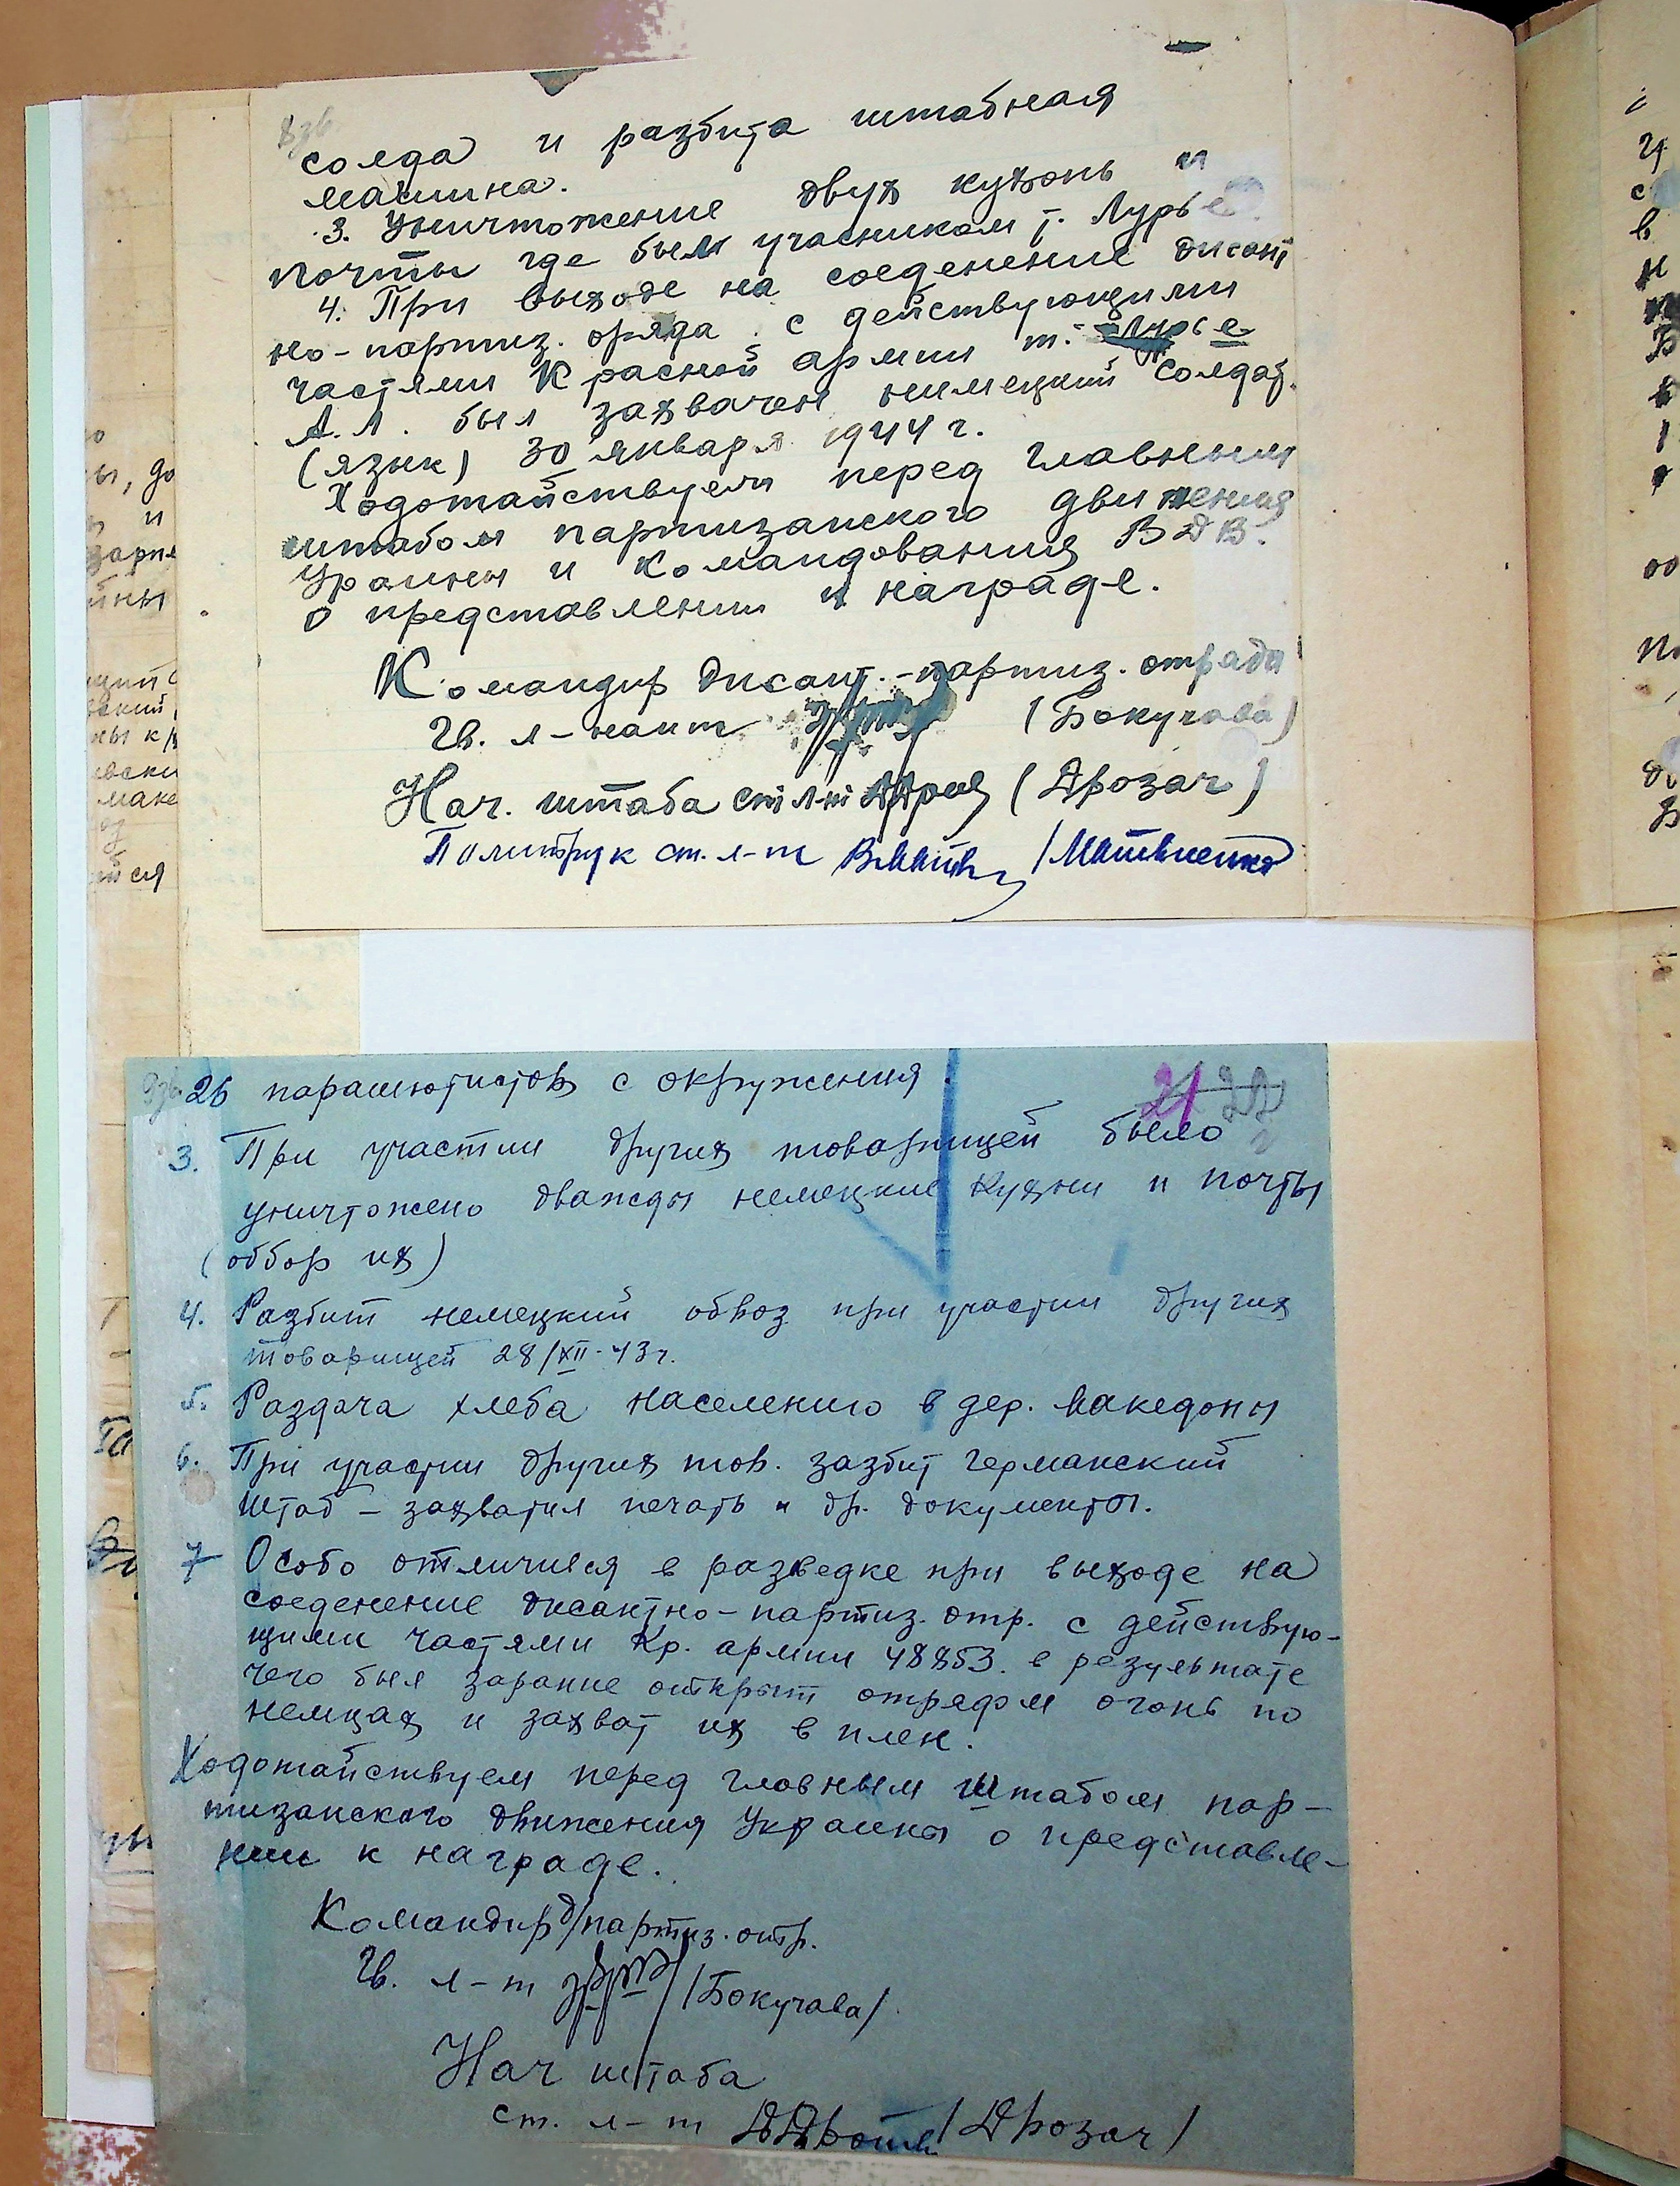 8 зв.
солда и разбита штабная
машина.
3. Уничтожение двух кухонь и
почты где был учасником т. Лурье
4. При выходе на соеденение дисант
но-партиз. оряда с действующими
частями Красной армии т. Лурье
А.Л. был захвачен нимецкий солдат.
(язык) 30 января 1944 г.
Ходотайствуем перед главным
штабом партизанского движения
Украины и командования ВДВ.
о представлении к награде.
Командир дисант.-партиз. отряда
Гв. л-нант (Бокучава)
Нач. штаба ст л-нт (Дрозач)
Политрук ст. л-т /Матвиенко
9 зв. 26 парашютистов с окружения
21 22
3. При участии других товарищей было
уничтожено дважды немецкие кухни и почты
(оббор их)
4. Разбит немецкий обвоз при участии других
товарищей 28/XII-43 г.
5. Раздача хлеба населению в дер. Македоны
6. При участии других тов. зазбит германский
штаб – захватил печать и др. документы.
7 Особо отличился в разведке при выходе на
соеденение дисактно-партиз. отр. с действую-
щими частями Кр. армии 48853. в результате
чего был зарание открыт отрядом огонь по
немцах и захват их в плен.
Ходотайствуем перед гловным штабом пар-
тизанского движения Украины о представле-
нии к награде.
Командир д/партиз. отр.
Гв. л-т /Бокучава/
Нач штаба
ст. л-т /Дрозач/